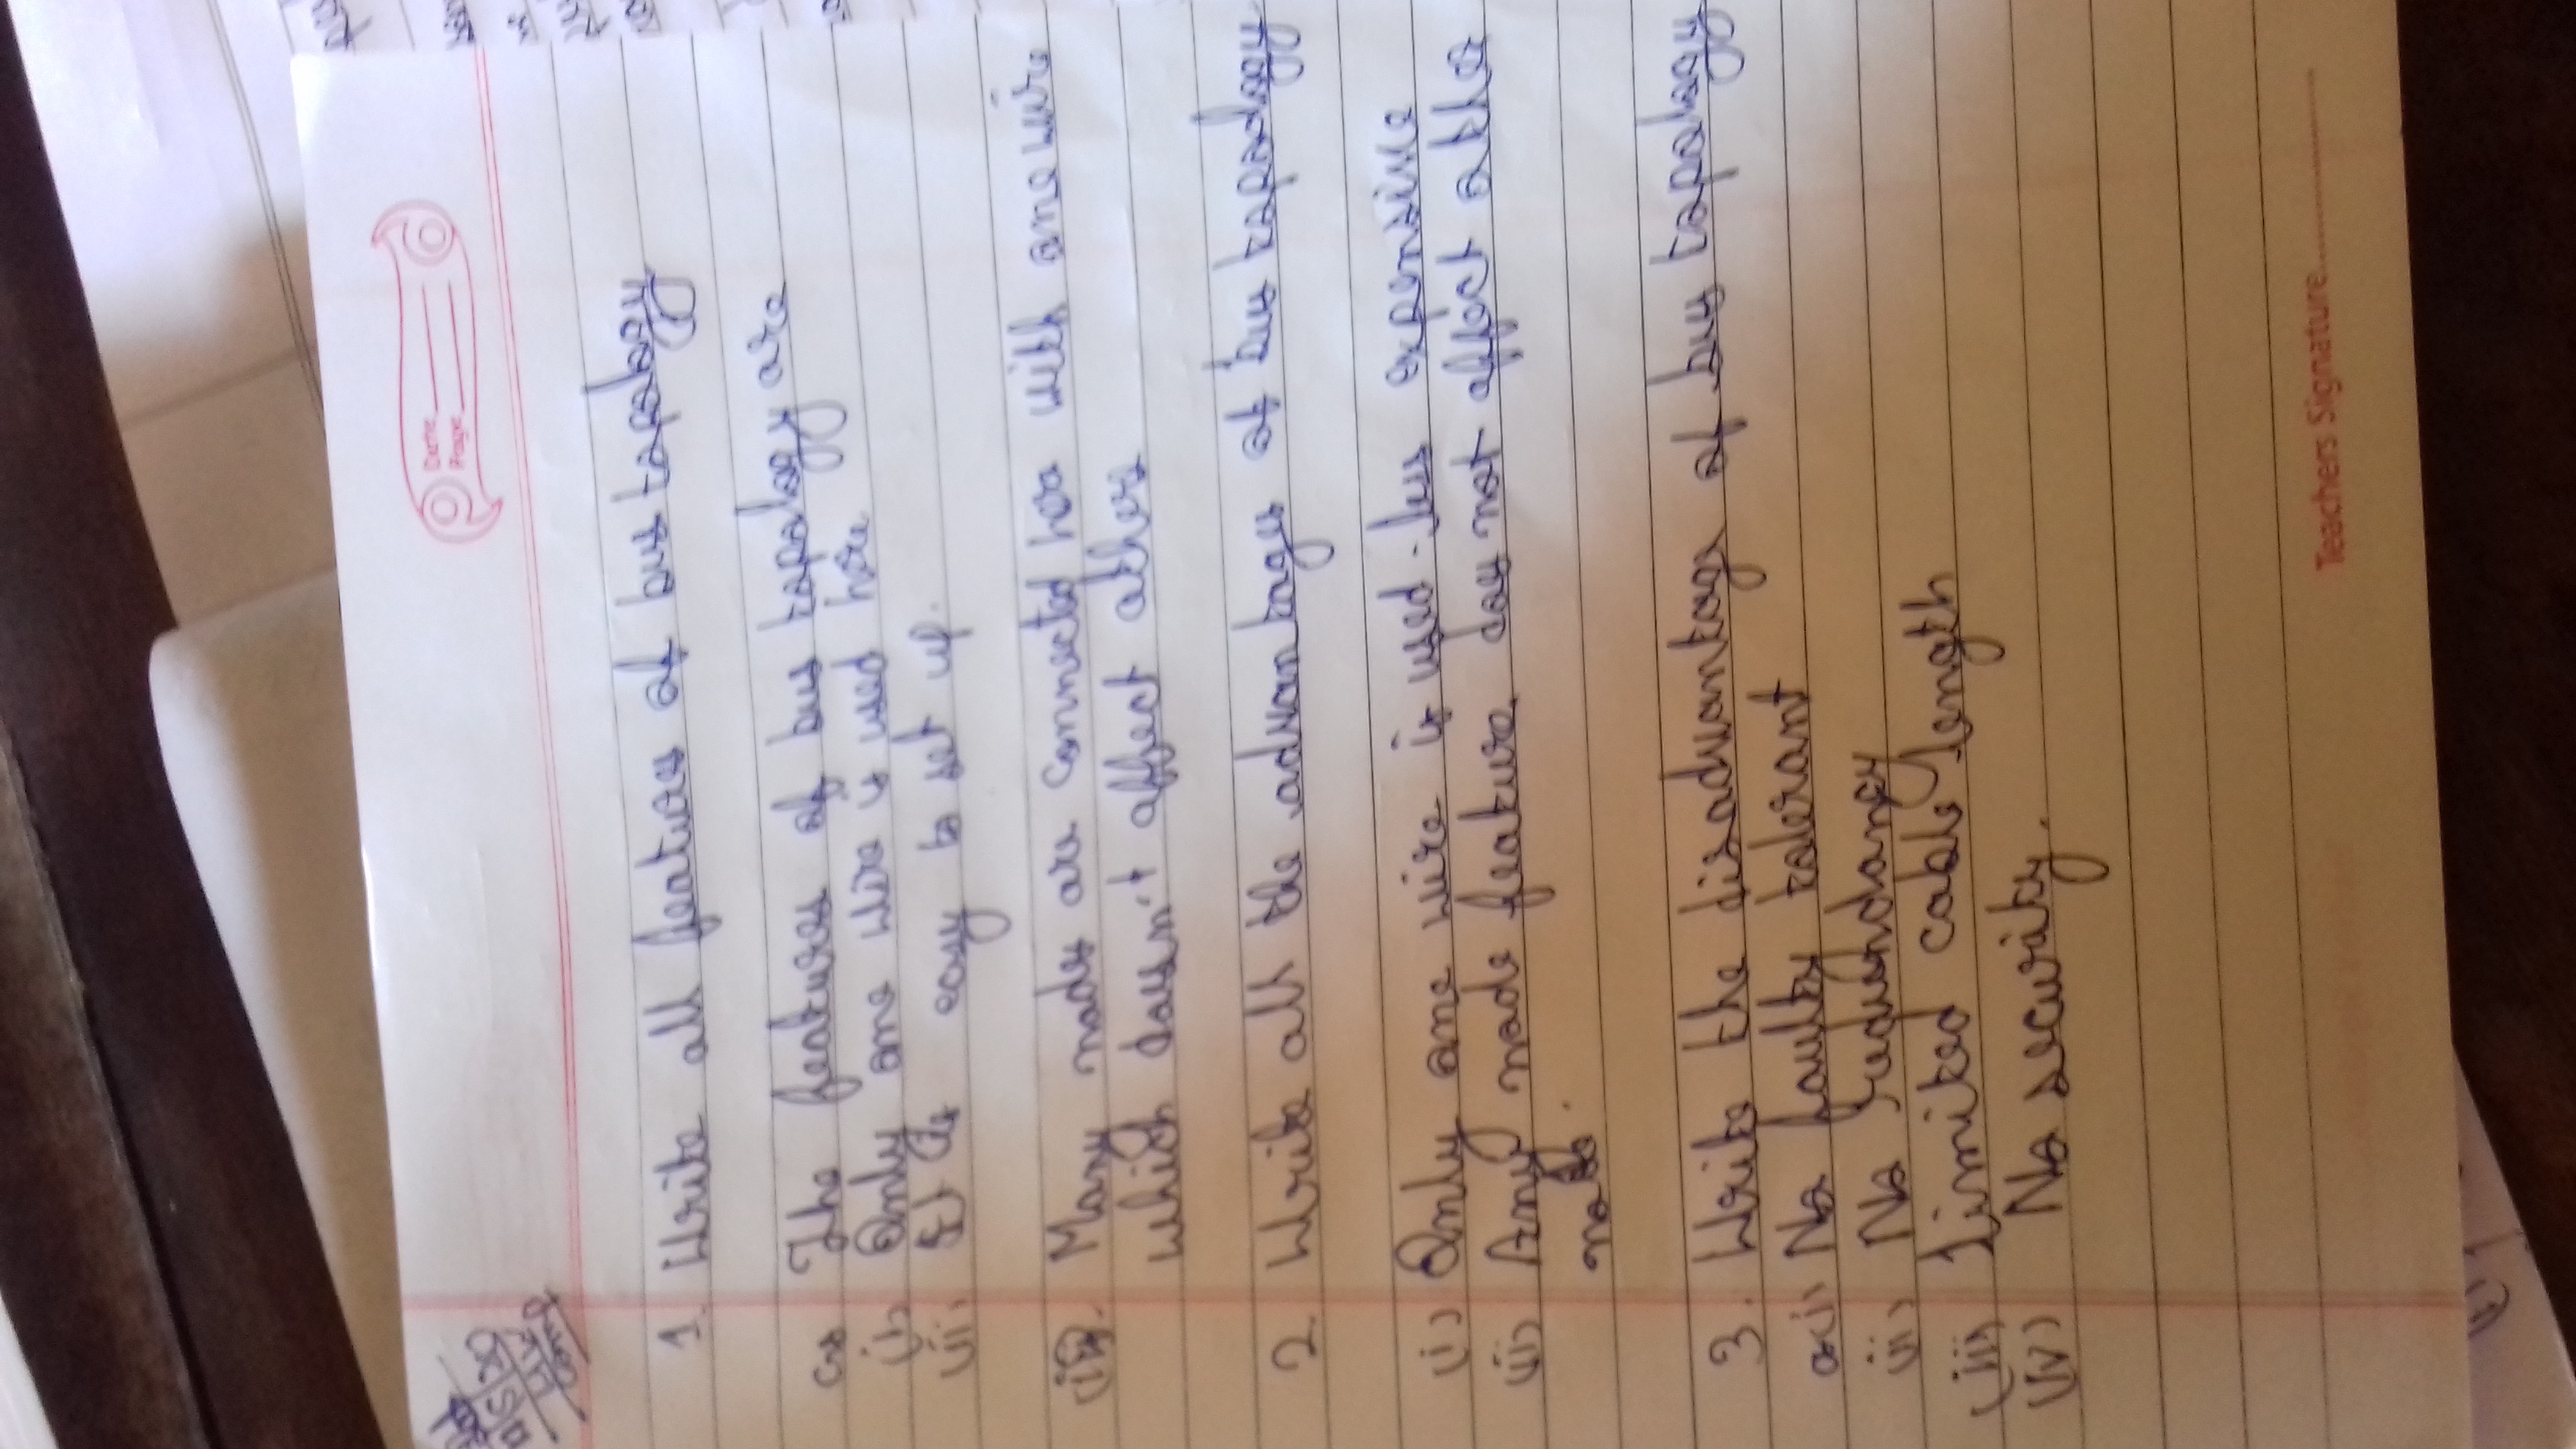 20/5/20
H.W
Comp
Date
Page
1. Write all features of bus topology
as The features of bus topology are
(i) Only one wire is used here
(ii) It is easy to set up.
(iii). Many nodes are connected here with one wire
which doesn't affect others
2. Write all the advantages of bus topology.
(i) Only one wire is used - less expensive
(ii) Any node feature does not affect other
node.
3. Write the disadvantage of bus topology
a(i) No faulty tolerant
(ii) No redundancy
(iii) limited cable length
(iv) No security.
Teachers Signature